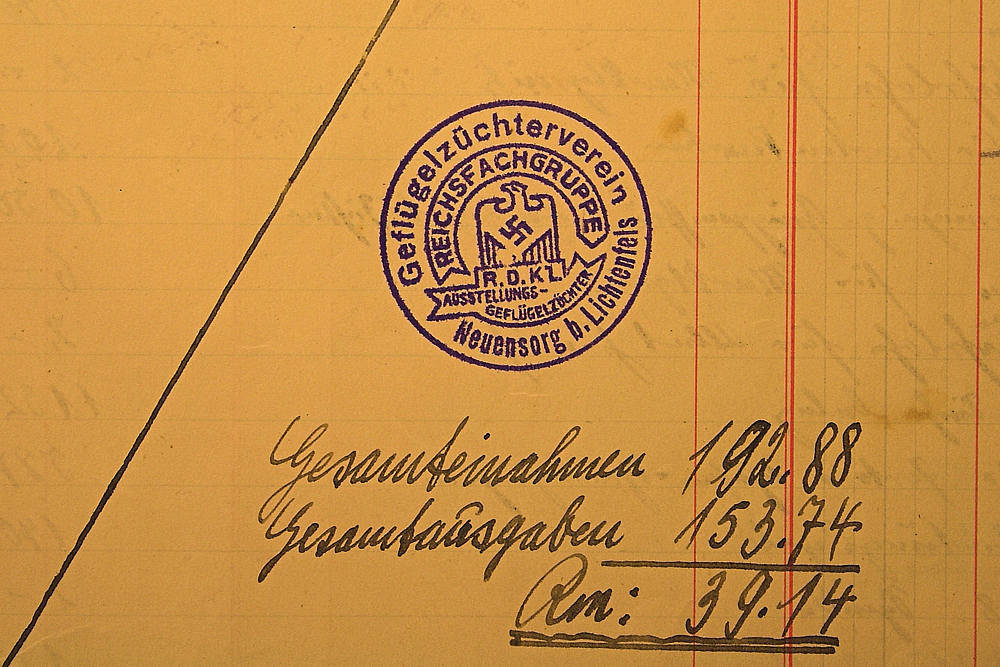 Geflügelzüchterverein
REICHSFACHGRUPPE
R.D.KL.
AUSSTELLUNGS-
GEFLÜGELZÜCHTER
Neuensorg b. Lichtenfels
Gesamteinahmen 192.88
Gesamtausgaben 153.74
Rm: 39.14